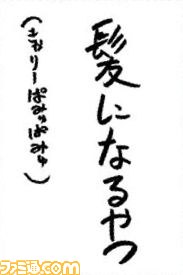 髪になるやつ
(きゃりーぱみゅぱみゅ)
ファミ通.com